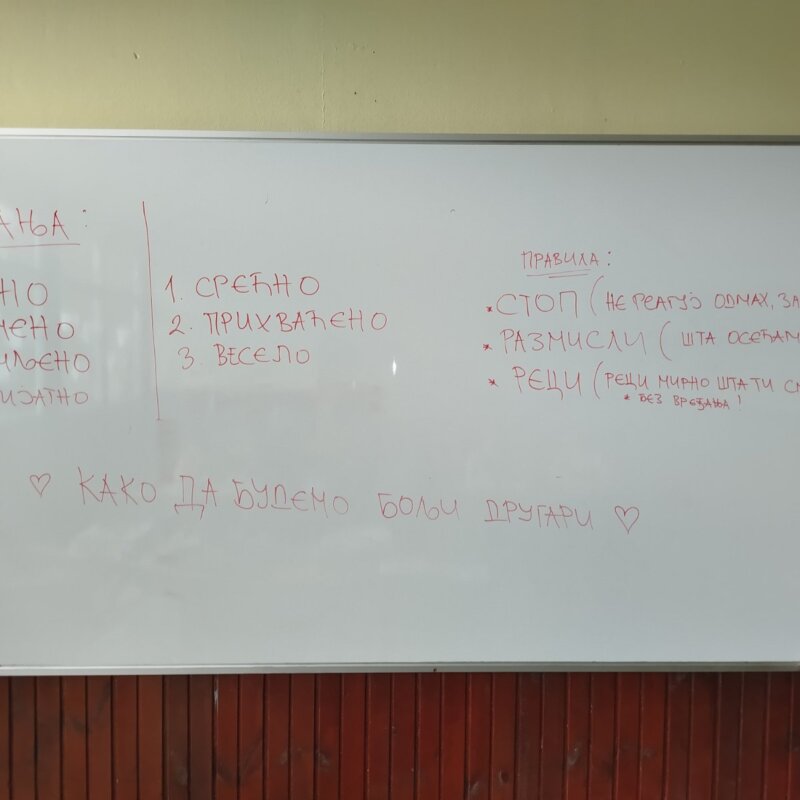 АЊА:
НО
ЧЕНО
ИЉЕНО
ИЈАТНО
1. СРЕЋНО
2. ПРИХВАЋЕНО
3. ВЕСЕЛО
ПРАВИЛА:
* СТОП (НЕ РЕАГУЈ ОДМАХ, ЗА
* РАЗМИСЛИ (ШТА ОСЕЋАМ
* РЕЦИ (РЕЦИ МИРНО ШТА ТИ СМ
* БЕЗ ВРЕЂАЊА!
♡ КАКО ДА БУДЕМО БОЉИ ДРУГАРИ ♡